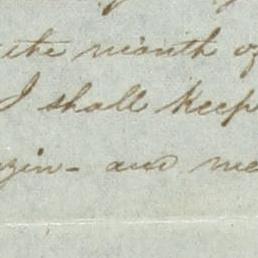 the month of
I shall keep
and me